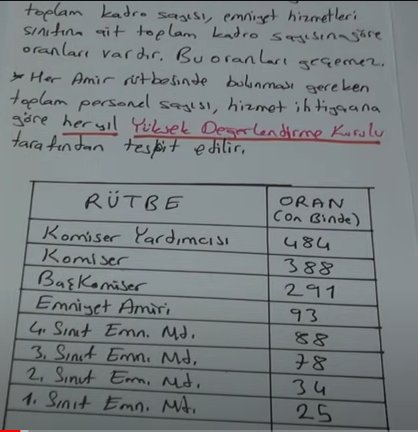 toplam kadro sayısı, emniyet hizmetleri
sınıfına ait toplam kadro sayısına göre
oranları vardır. Bu oranları geçemez.
* Her Amir rütbesinde bulunması gereken
toplam personel sayısı, hizmet ihtiyacına
göre her yıl Yüksek Değerlendirme Kurulu
tarafından tespit edilir.
RÜTBE ORAN (On Binde)
Komiser Yardımcısı 484
Komiser 388
Başkomiser 291
Emniyet Amiri 93
4. Sınıf Emn. Md. 88
3. Sınıf Emn. Md. 78
2. Sınıf Emn. Md. 34
1. Sınıf Emn. Md. 25